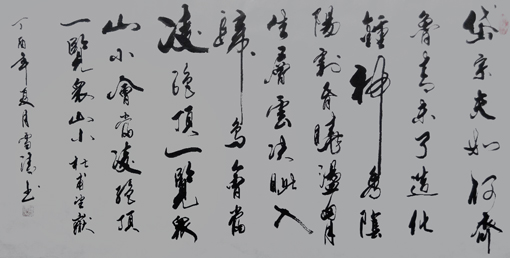 岱宗夫如何齊
魯青未了造化
鍾神秀陰
陽割昏曉盪胸
生層雲決眦入
歸鳥會當
凌絕頂一覽眾
山小會當凌絕頂
一覽眾山小杜甫望嶽
丁酉年夏月書